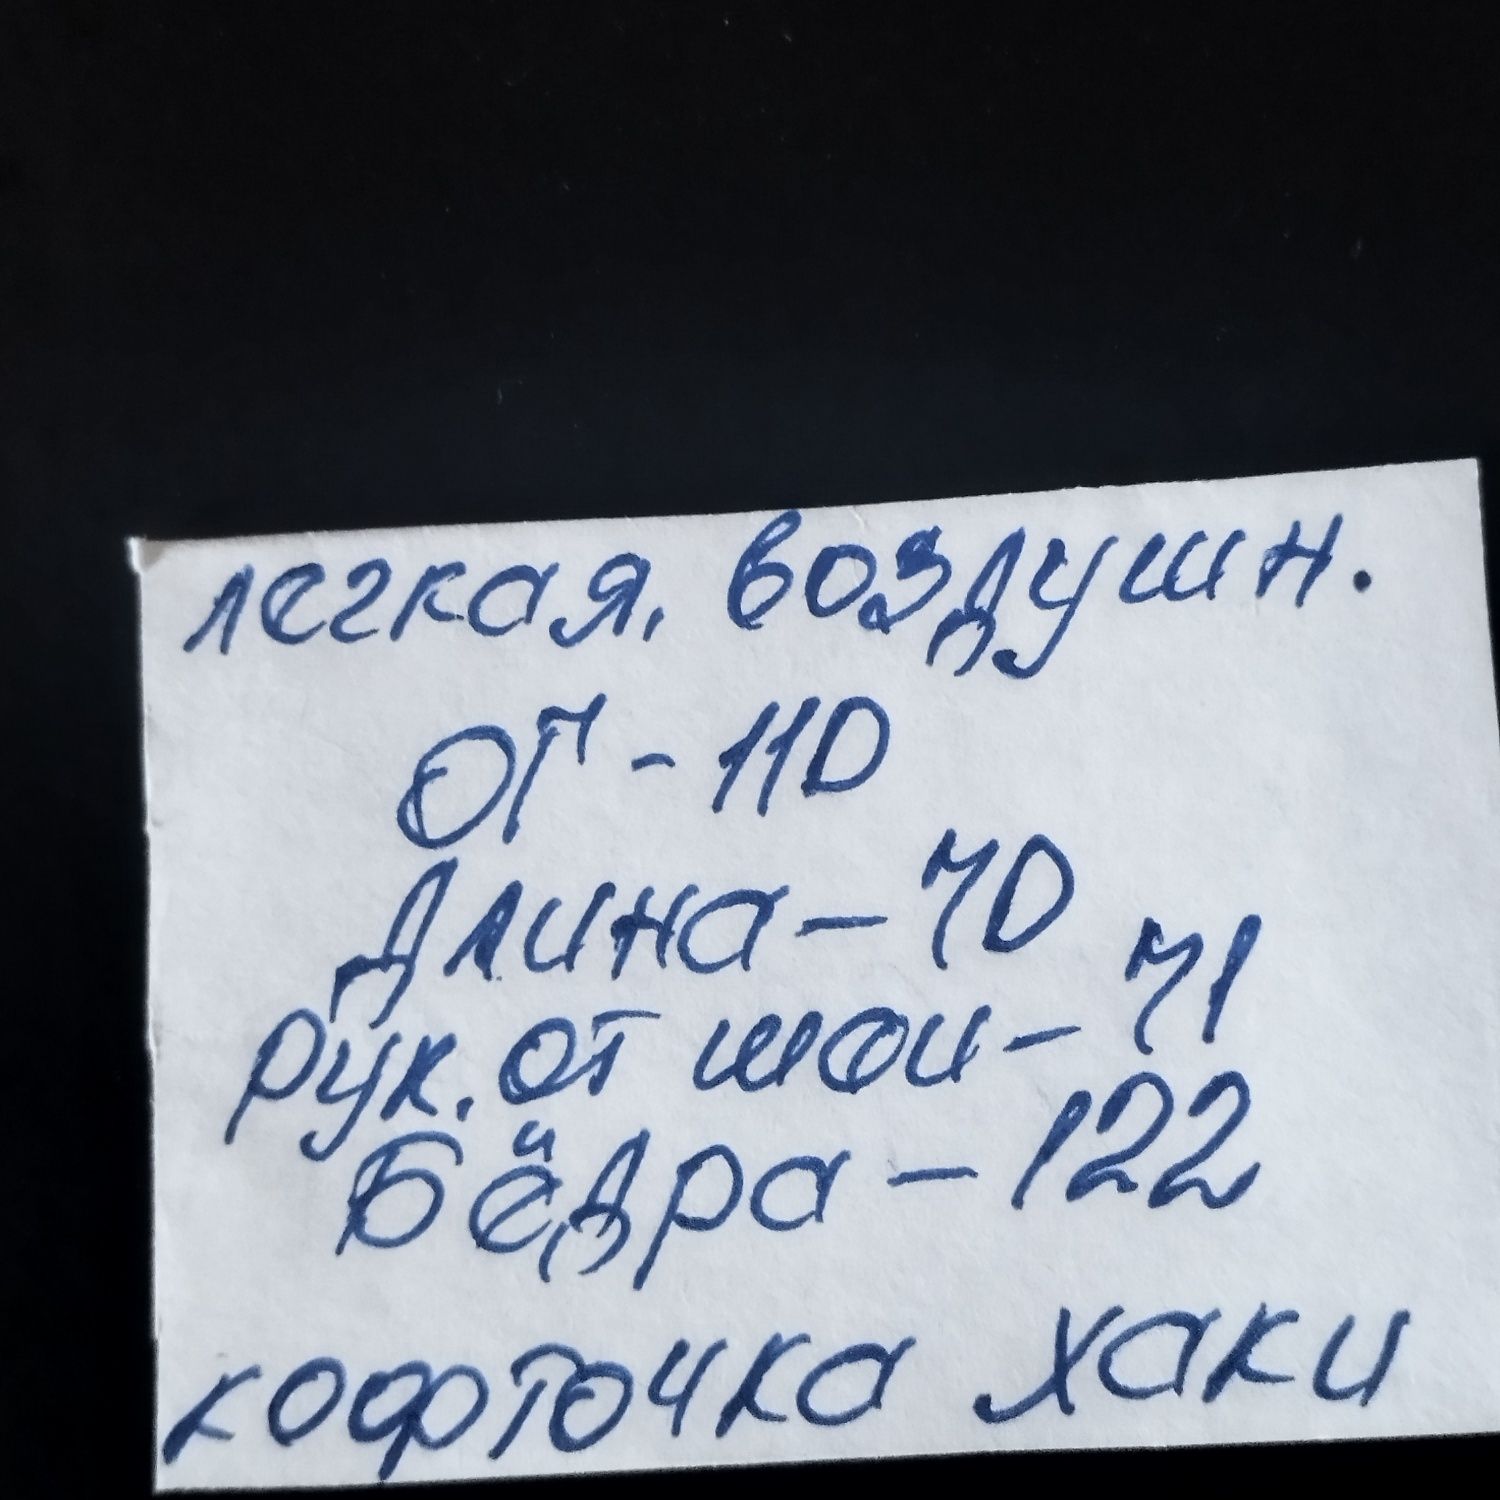 легкая, воздушн.
ОГ - 110
Длина - 70
Рук. от шеи - 71
Бёдра - 122
кофточка хаки